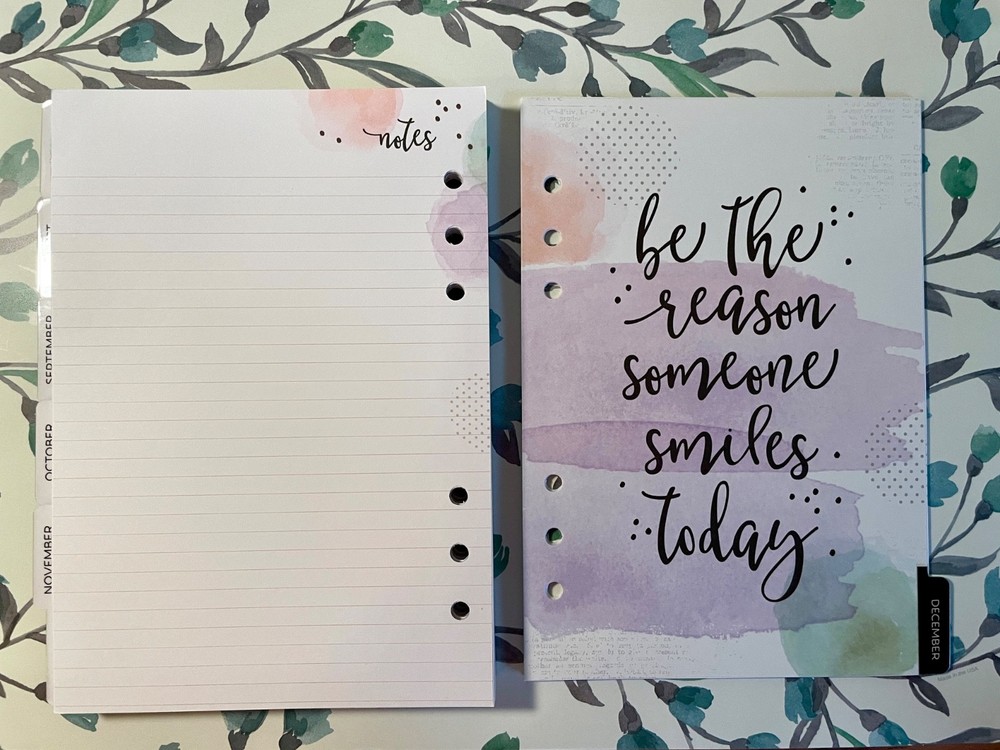 notes
SEPTEMBER
OCTOBER
NOVEMBER
be the
reason
someone
smiles
today
DECEMBER